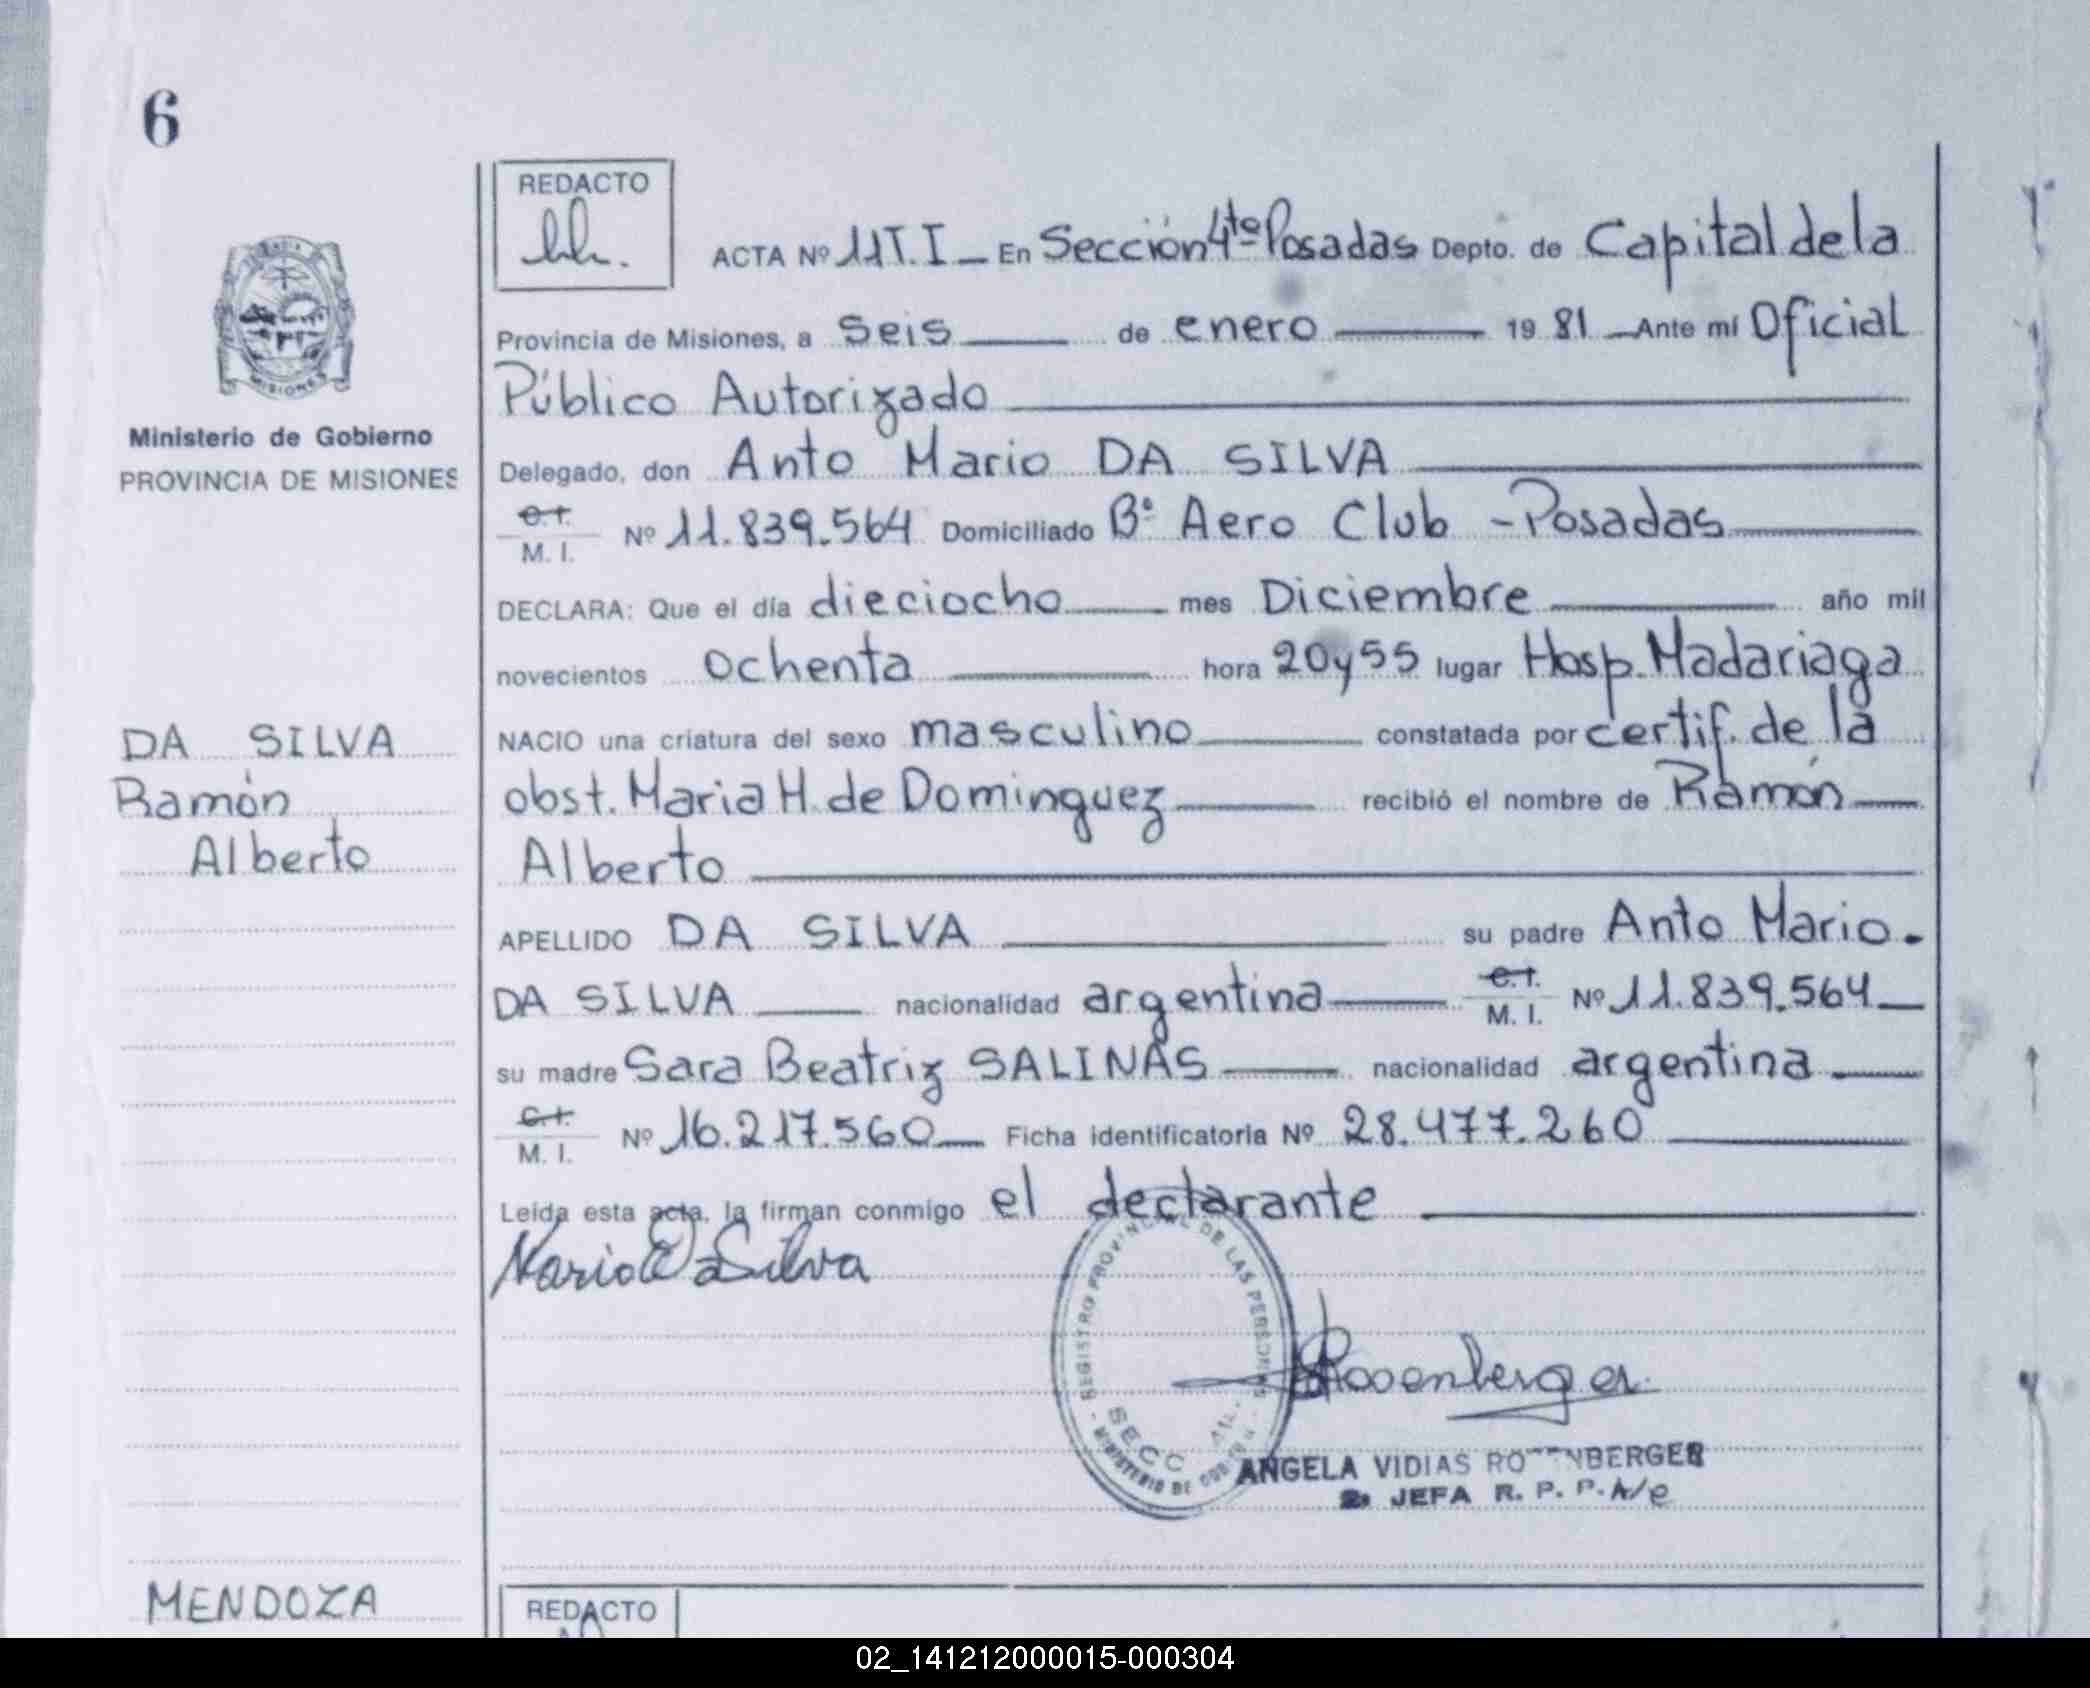 6
REDACTO
ACTA Nº 11 T. I - En Sección 4ta Posadas Depto. de Capital de la
Provincia de Misiones, a seis de enero 1981 Ante mí Oficial
Público Autorizado
Ministerio de Gobierno
PROVINCIA DE MISIONES
MISIONES
Delegado, don Anto Mario DA SILVA
C.I.
M. I. Nº 11.839.564 Domiciliado Bº Aero Club - Posadas
DECLARA: Que el día dieciocho mes Diciembre año mil
novecientos ochenta hora 20 y 55 lugar Hosp. Madariaga
DA SILVA
Ramón
Alberto
NACIO una criatura del sexo masculino constatada por certif. de la
obst. Maria H. de Dominguez recibió el nombre de Ramón
Alberto
APELLIDO DA SILVA su padre Anto Mario.
DA SILVA nacionalidad argentina C.I. M. I. Nº 11.839.564
su madre Sara Beatriz SALINAS nacionalidad argentina
C.I.
M. I. Nº 16.217.560 Ficha identificatoria Nº 28.477.260
Leída esta acta, la firman conmigo el declarante
Mario Da Silva
REGISTRO PROVINCIAL DE LAS PERSONAS
SECC
MINISTERIO DE
Rosenberger
ANGELA VIDIAS RO NBERGER
2ª JEFA R. P. P. A/c
MENDOZA
REDACTO
02_141212000015-000304